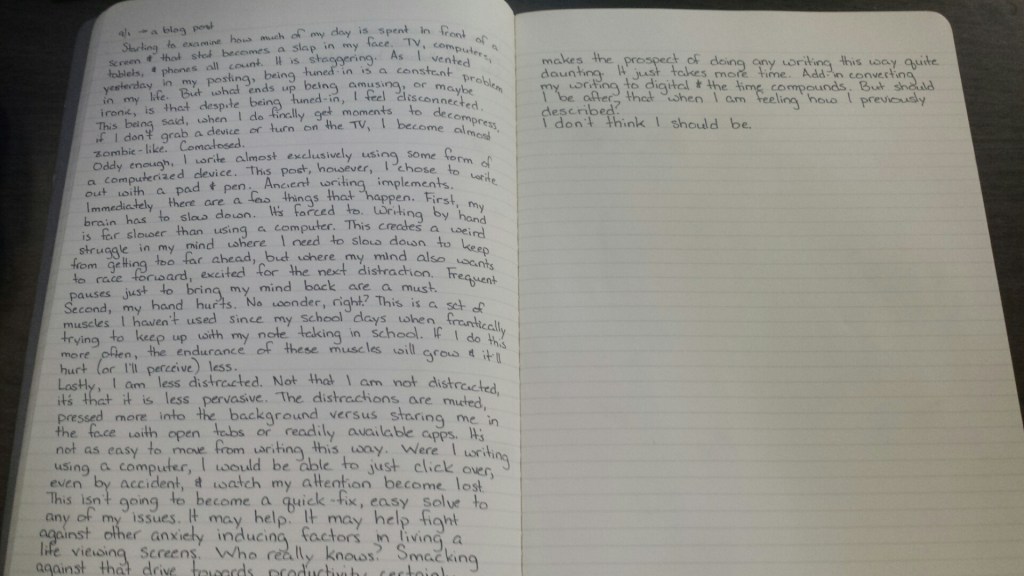 9/1 → a blog post
Starting to examine how much of my day is spent in front of a
screen & that stat becomes a slap in my face. TV, computers,
tablets, & phones all count. It is staggering. As I vented
yesterday in my posting, being tuned-in is a constant problem
in my life. But what ends up being amusing, or maybe
ironic, is that despite being tuned-in, I feel disconnected.
This being said, when I do finally get moments to decompress,
if I don't grab a device or turn on the TV, I become almost
zombie-like. Comatosed.
Oddy enough, I write almost exclusively using some form of
a computerized device. This post, however, I chose to write
out with a pad & pen. Ancient writing implements.
Immediately there are a few things that happen. First, my
brain has to slow down. It's forced to. Writing by hand
is far slower than using a computer. This creates a weird
struggle in my mind where I need to slow down to keep
from getting too far ahead, but where my mind also wants
to race forward, excited for the next distraction. Frequent
pauses just to bring my mind back are a must.
Second, my hand hurts. No wonder, right? This is a set of
muscles I haven't used since my school days when frantically
trying to keep up with my note taking in school. If I do this
more often, the endurance of these muscles will grow & it'll
hurt (or I'll perceive) less.
Lastly, I am less distracted. Not that I am not distracted,
it's that it is less pervasive. The distractions are muted,
pressed more into the background versus staring me in
the face with open tabs or readily available apps. It's
not as easy to move from writing this way. Were I writing
using a computer, I would be able to just click over,
even by accident, & watch my attention become lost.
This isn't going to become a quick-fix, easy solve to
any of my issues. It may help. It may help fight
against other anxiety inducing factors in living a
life viewing screens. Who really knows? Smacking
against that drive towards productivity
makes the prospect of doing any writing this way quite
daunting. It just takes more time. Add-in converting
my writing to digital & the time compounds. But should
I be after that when I am feeling how I previously
described?
I don't think I should be.